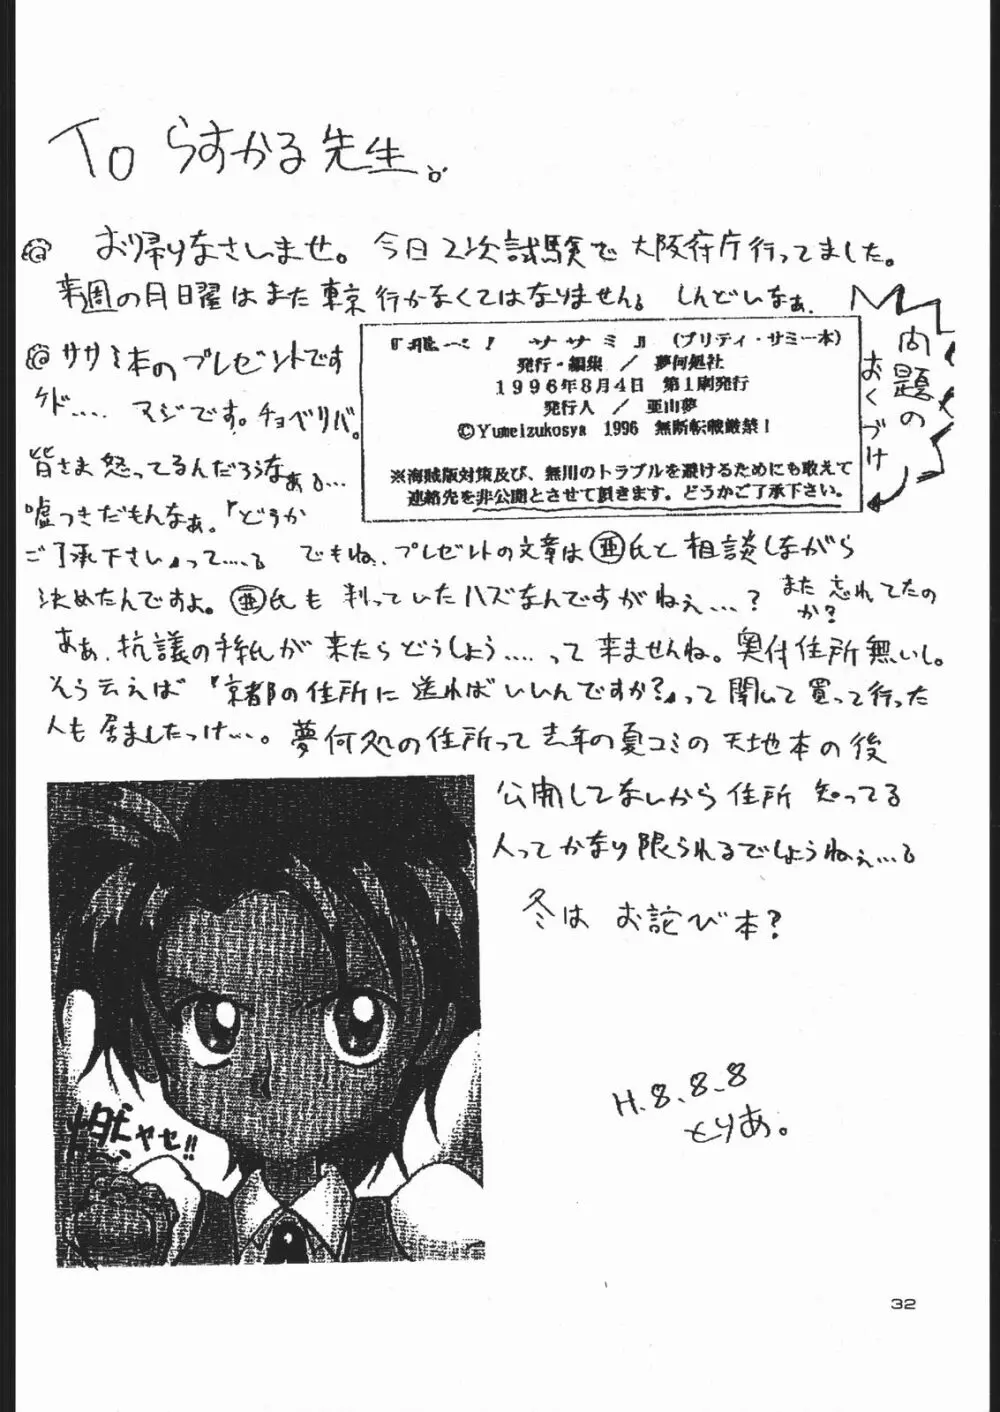 To らすかる先生。
@ おかえりなさいませ。今日2次試験で大阪府庁行ってました。
来週の月曜日はまた東京行かなくてはなりません。しんどいなぁ。
@ ササミ本のプレゼントです
ケド.... マジです。チョベリバ。
皆さま怒ってるんだろうなぁ。...
嘘つきだもんなぁ。「どうか
ご了承下さい」って....。でもね、プレゼントの文章は亜氏と相談しながら
決めたんですよ。亜氏も判っていたハズなんですがねぇ...? また忘れてたの
か?
あぁ、抗議の手紙が来たらどうしよう....って来ませんね。奥付住所無いし。
そう云えば「京都の住所に送ればいいんですか?」って聞いて買って行った
人も居ましたっけ...。夢何処の住所って去年の夏コミの天地本の後
公開してないから住所知ってる
人ってかなり限られるでしょうねぇ...。
冬はお詫び本?
問題の
おくづけ
『飛べ! ササミ』(プリティ・サミー本)
発行・編集 / 夢何処社
1996年8月4日 第1刷発行
発行人 / 亜山夢
©Yumeizukosya 1996 無断転載厳禁!
※海賊版対策及び、無用のトラブルを避けるためにも敢えて
連絡先を非公開とさせて頂きます。どうかご了承下さい。
燃ヤセ!!
H.8.8.8
とりあ。
32